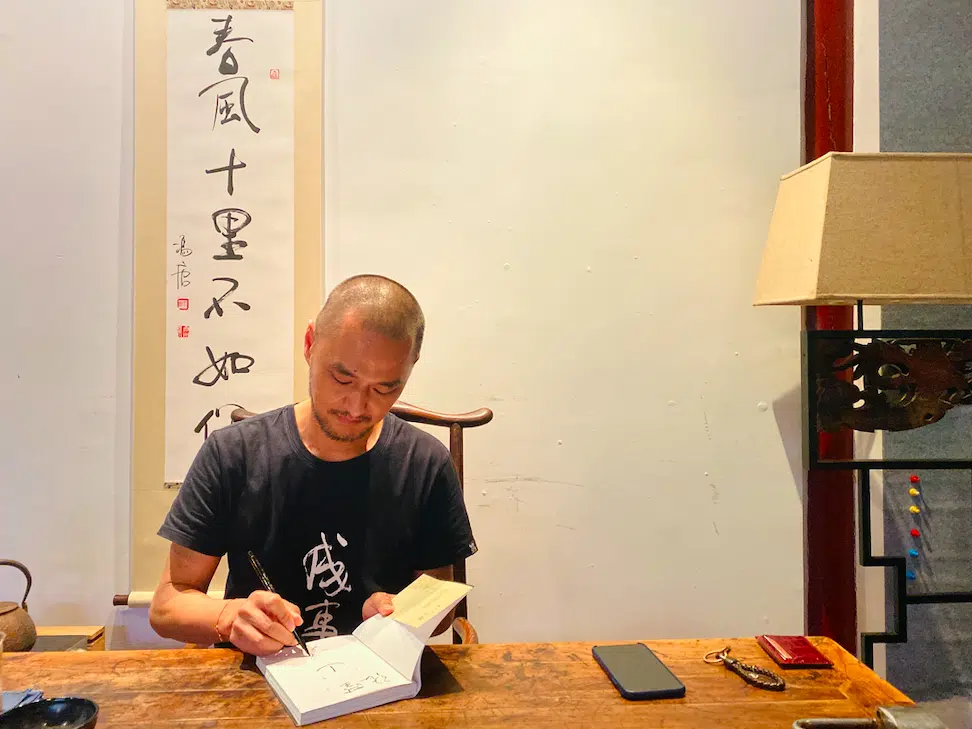 春風十里不如你
冯唐
成事